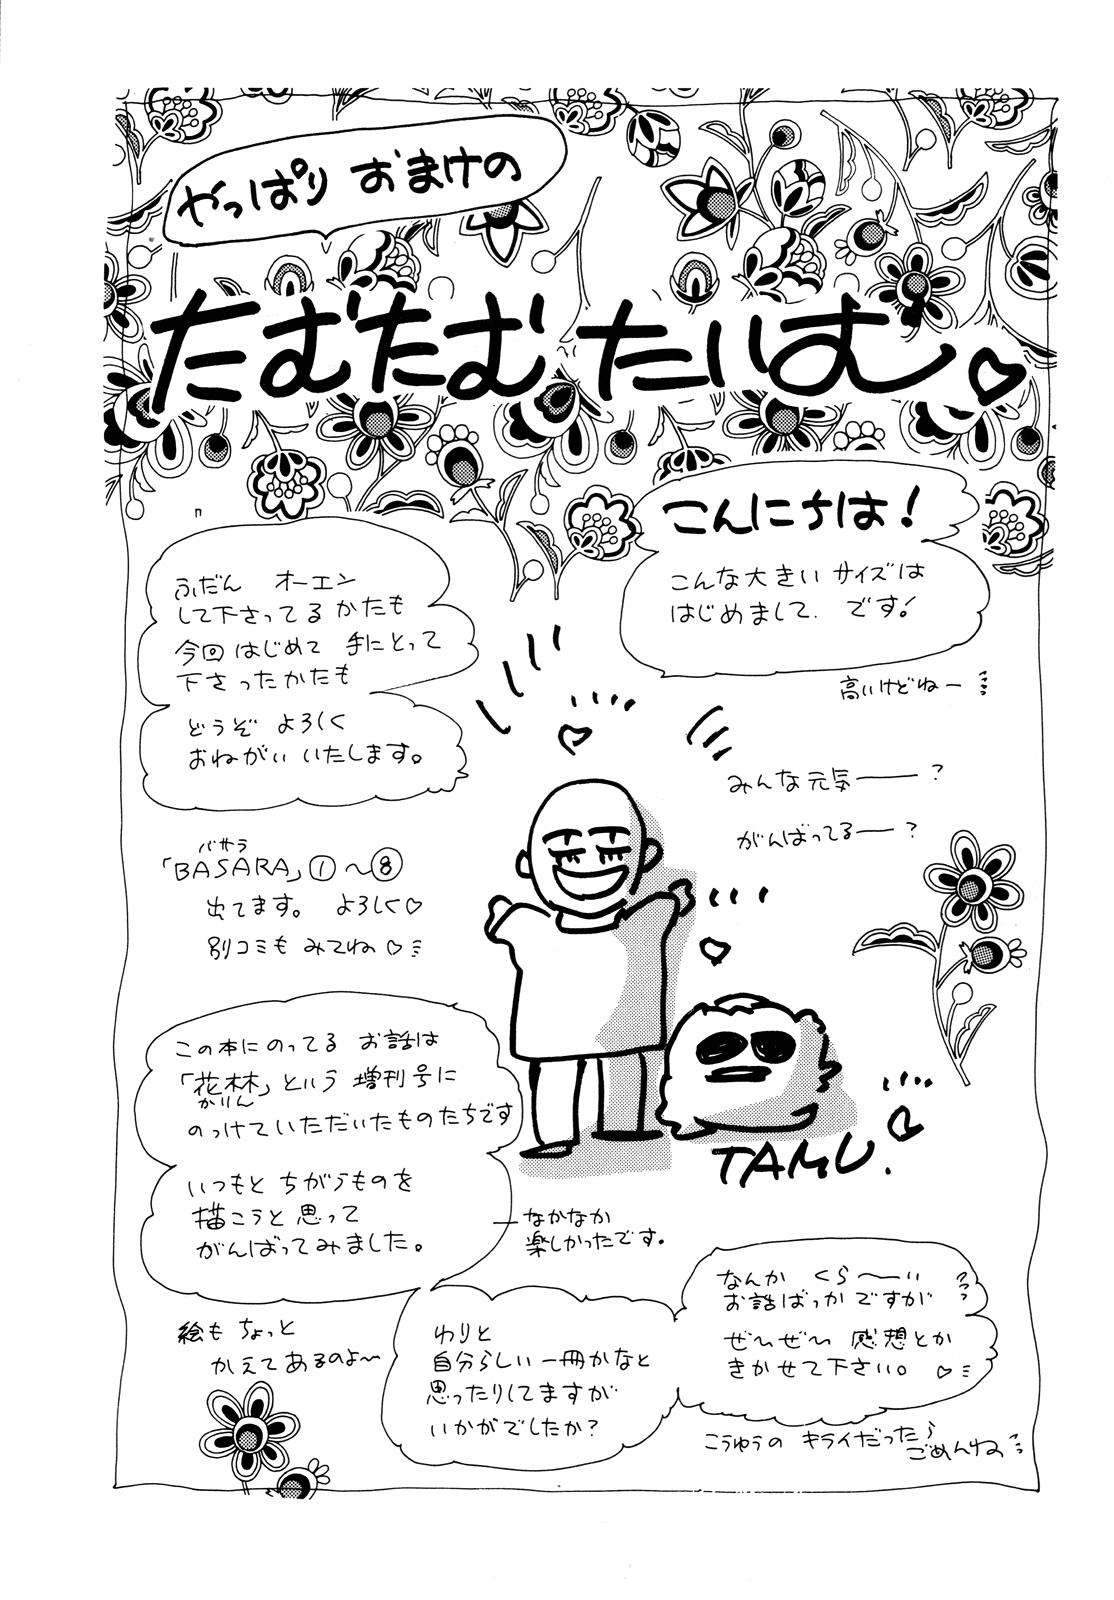 やっぱり おまけの
たむたむたいむ♡
こんにちは！
こんな大きい サイズは
はじめまして. です！
高いけどねー
ふだん オーエン
して下さってるかたも
今回はじめて 手にとって
下さったかたも
どうぞ よろしく
おねがい いたします。
みんな元気——？
がんばってる——？
バサラ
「BASARA」①〜⑧
出てます。 よろしく♡
別コミも みてね♡
この本にのってる お話は
「花林」という 増刊号に
かりん
のっけていただいたものたちです
いつもと ちがうものを
描こうと思って
がんばってみました。
なかなか
楽しかったです。
TAMU.
絵も ちょっと
かえてあるのよ〜
わりと
自分らしい一冊かなと
思ったりしてますが
いかがでしたか？
なんか くら〜い
お話ばっかですが
ぜひぜひ 感想とか
きかせて下さい。♡
こうゆうの キライだったら
ごめんね